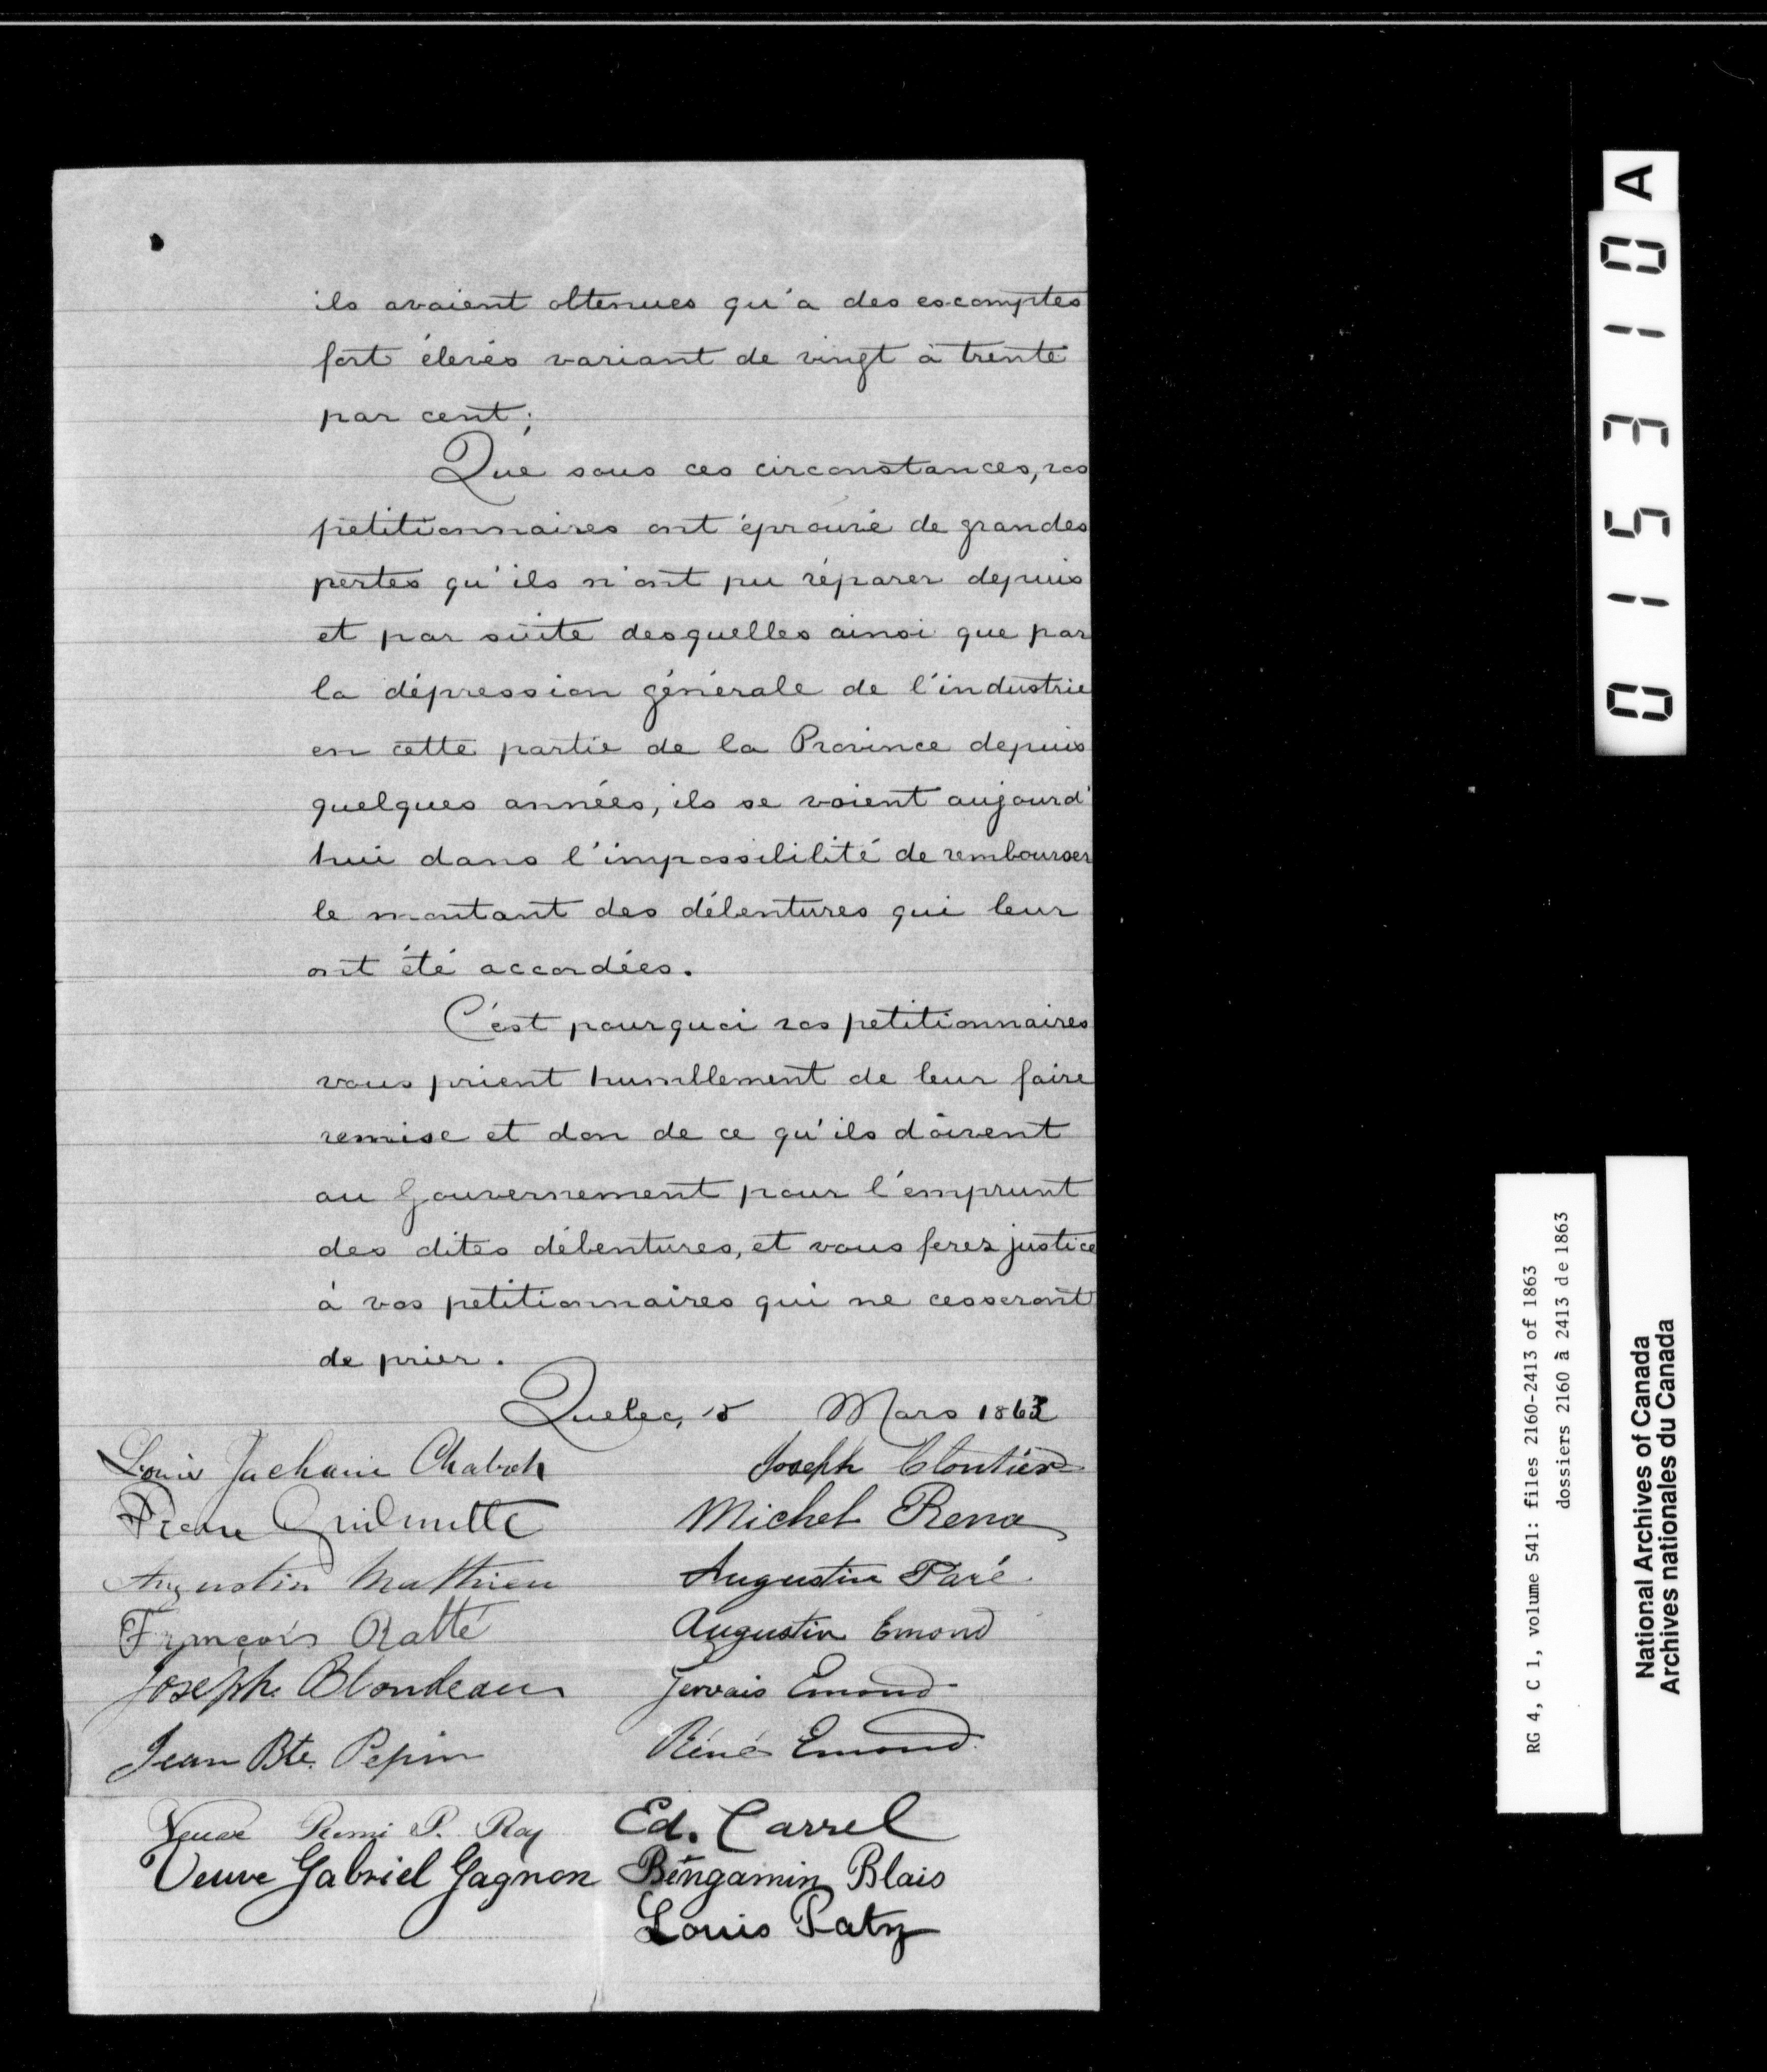 ils avaient obtenues qu'a des escomptes
fort élevés variant de vingt à trente
par cent;
Que sous ces circonstances, vos
petitionnaires ont éprouvé de grandes
pertes qu'ils n'ont pu réparer depuis
et par suite desquelles ainsi que par
la dépression générale de l'industrie
en cette partie de la Province depuis
quelques années, ils se voient aujourd'
hui dans l'impossibilité de rembourser
le montant des débentures qui leur
ont été accordées.
C'est pourquoi vos petitionnaires
vous prient humblement de leur faire
remise et don de ce qu'ils doivent
au Gouvernement pour l'emprunt
des dites débentures, et vous ferez justice
à vos petitionnaires qui ne cesseront
de prier.
Quebec, Mars 1863
Louis Chabot
Joseph Cloutier
Pierre
Michel
Augustin Mathieu
Augustin Paré
François Ratté
Augustin Emond
Joseph Blondeau
Gervais Emond
Jean Bte. Pepin
Réné Emond
Veuve Remi P. Roy
Ed. Carrel
Veuve Gabriel Gagnon
Bengamin Blais
Louis Paty
015310 A
RG 4, C 1, volume 541: files 2160-2413 of 1863
dossiers 2160 à 2413 de 1863
National Archives of Canada
Archives nationales du Canada